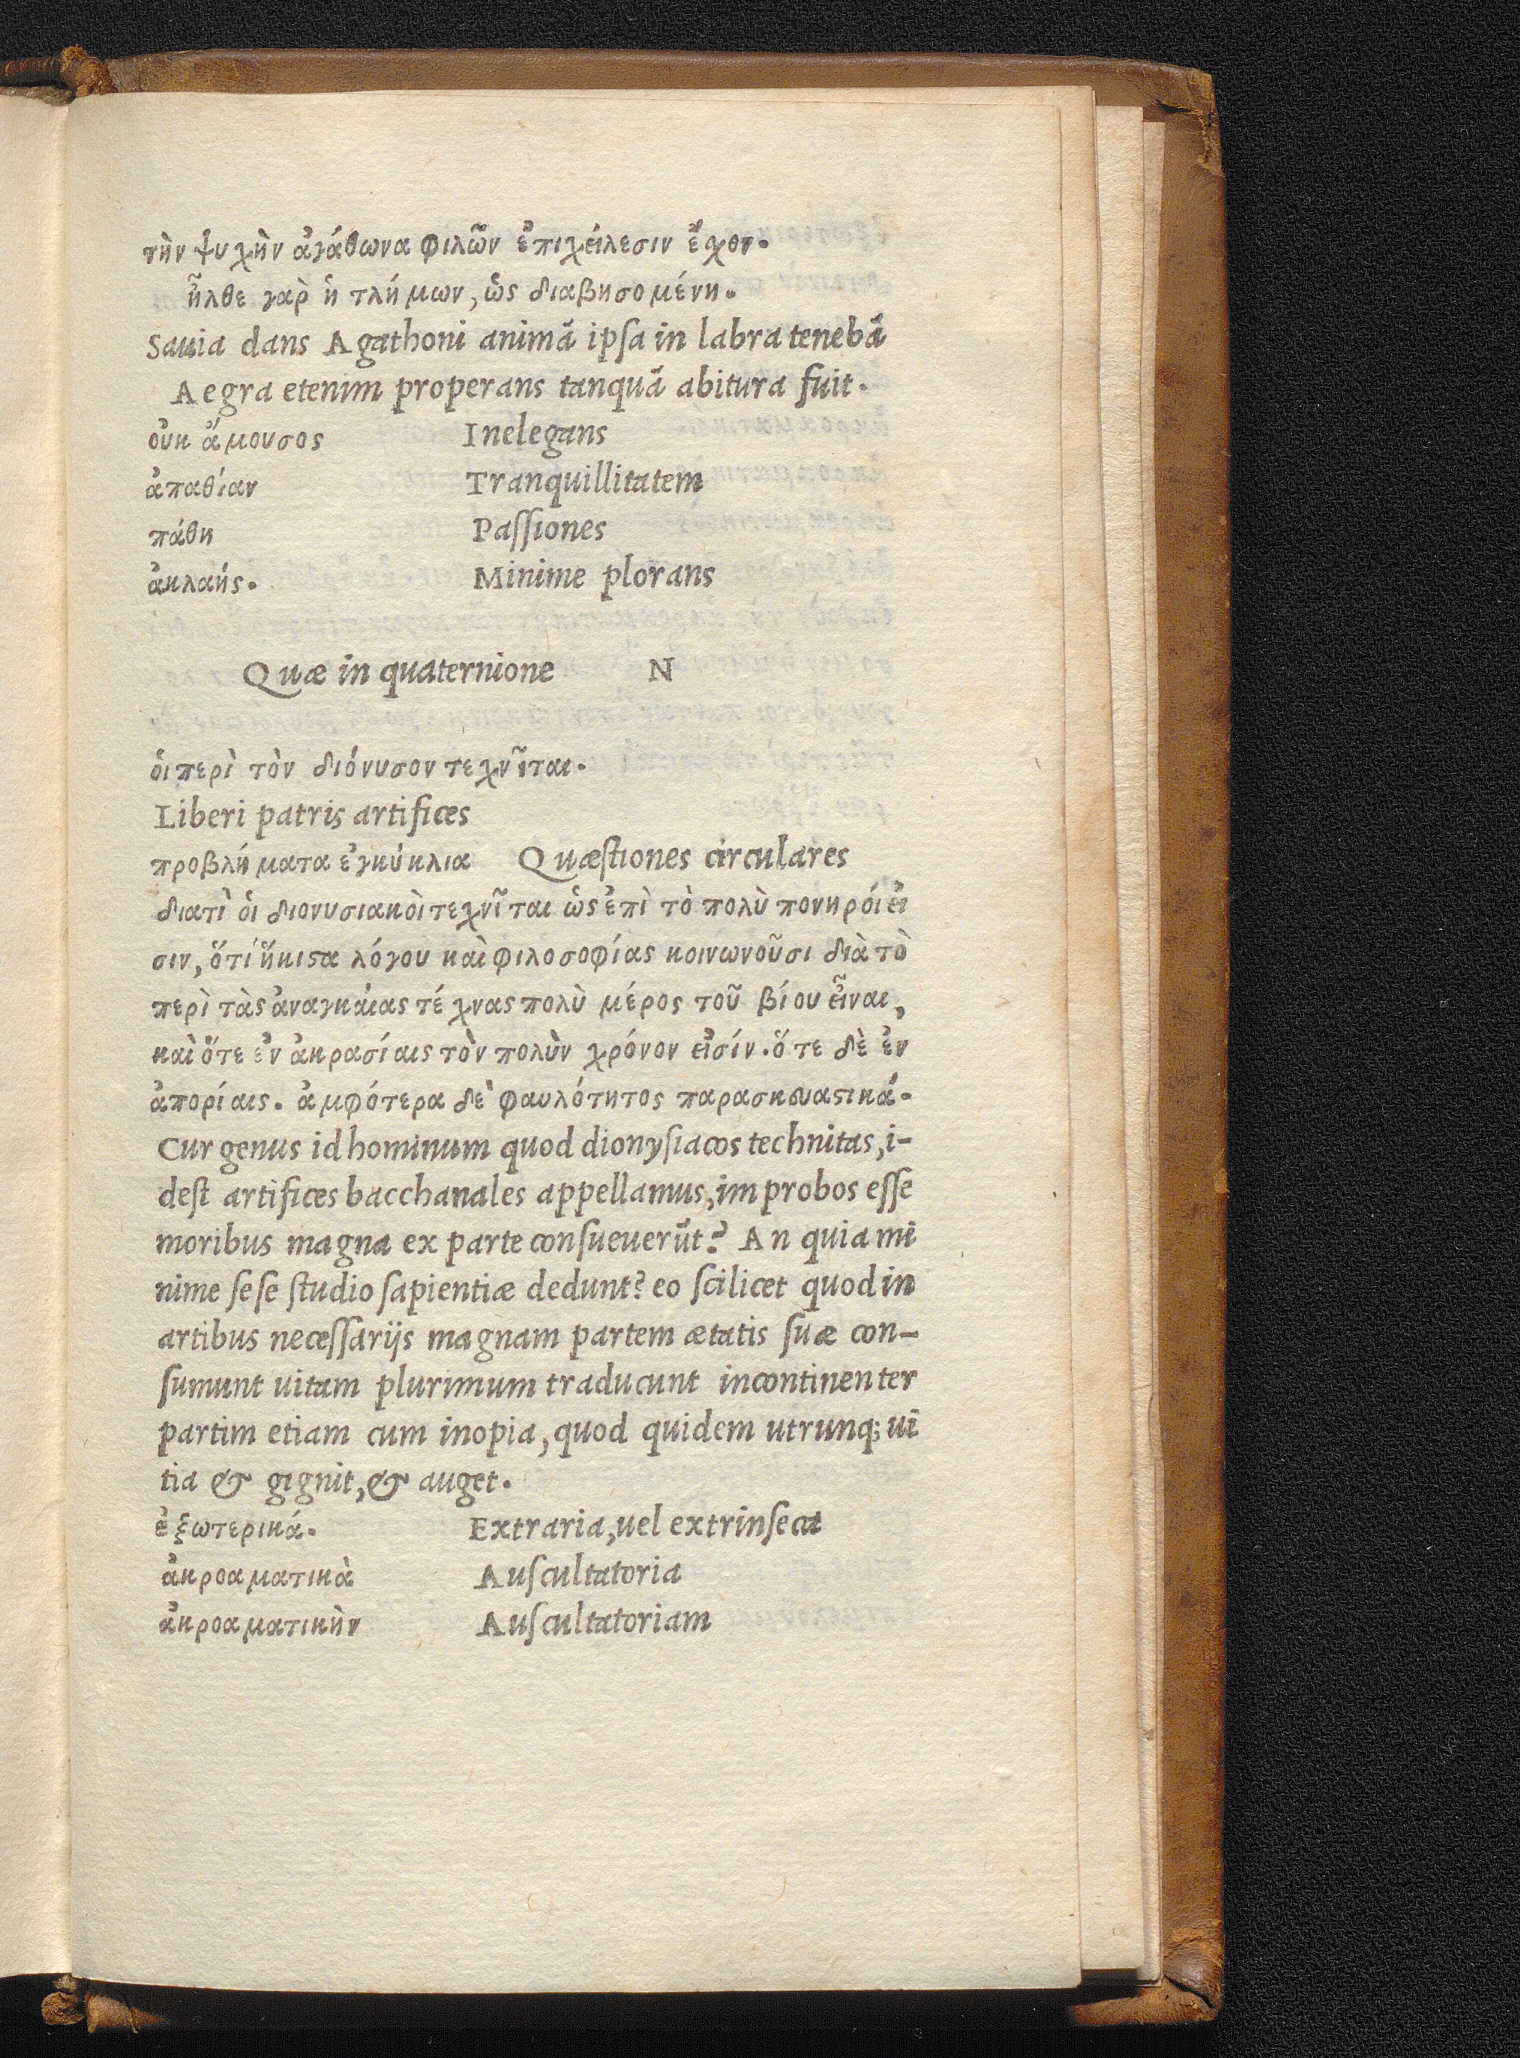 τὴν ψυχὴν ἀγάθωνα φιλῶν ἐπιχείλεσιν ἔχον.
ἦλθε γαρ̀ ἡ τλήμων, ὡς διαβησομένη.
Sauia dans Agathoni animã ipſa in labra tenebã
Aegra etenim properans tanquã abitura fuit.
οὐκ ἄμουσος Inelegans
ἀπαθίαν Tranquillitatem
πάθη Paſſiones
ἀκλαής. Minime plorans
Quæ in quaternione N
ὁι περὶ τὸν διόνυσον τεχνῖται.
Liberi patris artifices
προβλήματα ἐγκύκλια Quæſtiones circulares
διατὶ ὁι διονυσιακὸι τεχνῖται ὡς ἐπὶ τὸ πολὺ πονηρόι ἐι
σιν, ὅτί ἥκιϛα λόγου καὶ φιλοσοφίας κοινωνοῦσι διὰ τὸ
περὶ τὰς ἀναγκάιας τέχνας πολὺ μέρος τοῦ βίου εἶναι,
καὶ ὅτε ἐν ἀκρασίαις τὸν πολὺν χρόνον εἰσίν. ὅτε δὲ ἐν
ἀπορίαις. ἀμφότερα δὲ φαυλότητος παρασκευαϛικά.
Cur genus id hominum quod dionyſiacos technitas, i-
deſt artifices bacchanales appellamus, improbos eſſe
moribus magna ex parte conſueuerũt? An quia mi
nime ſeſe ſtudio ſapientiæ dedunt? eo ſcilicet quod in
artibus neceſſarijs magnam partem ætatis ſuæ con-
ſumunt uitam plurimum traducunt incontinenter
partim etiam cum inopia, quod quidem utrunq; ui
tia & gignit, & auget.
ἐξωτερικά. Extraria, uel extrinſeca
ἀκροαματικὰ Auſcultatoria
ἀκροαματικὴν Auſcultatoriam